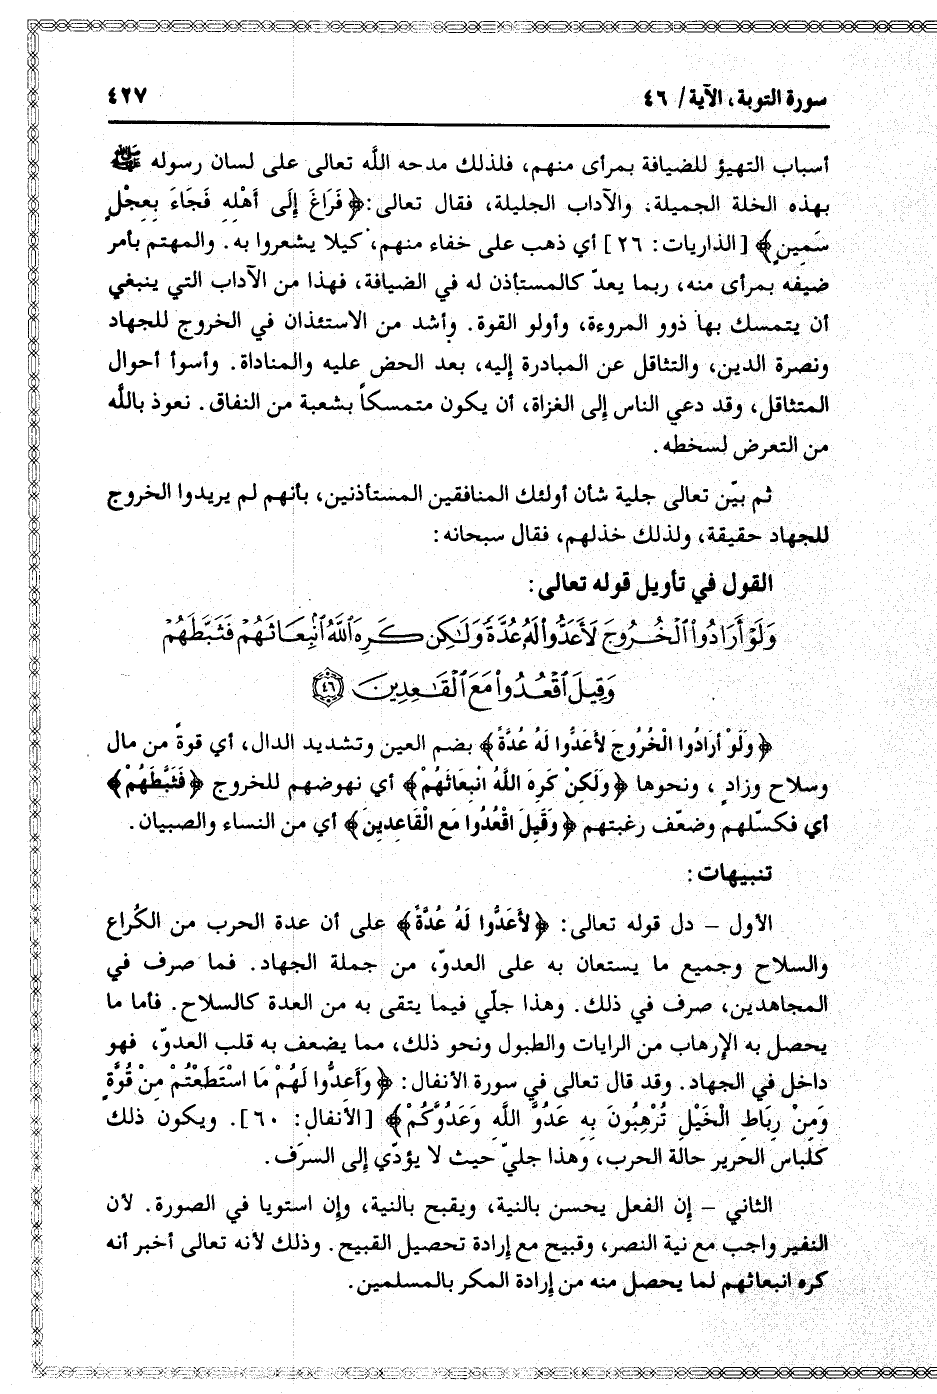 سورة التوبة، الآية/ ٤٦
٤٢٧
أسباب التهيؤ للضيافة بمرأى منهم، فلذلك مدحه اللَّه تعالى على لسان رسوله ﷺ
بهذه الخلة الجميلة، والآداب الجليلة، فقال تعالى: ﴿فَرَاغَ إِلَى أَهْلِهِ فَجَاءَ بِعِجْلٍ
سَمِينٍ﴾ [الذاريات: ٢٦] أي ذهب على خفاء منهم، كيلا يشعروا به. والمهتم بأمر
ضيفه بمرأى منه، ربما يعدّ كالمستأذن له في الضيافة، فهذا من الآداب التي ينبغي
أن يتمسك بها ذوو المروءة، وأولو القوة. وأشد من الاستئذان في الخروج للجهاد
ونصرة الدين، والتثاقل عن المبادرة إليه، بعد الحض عليه والمناداة. وأسوأ أحوال
المتثاقل، وقد دعي الناس إلى الغزاة، أن يكون متمسكاً بشعبة من النفاق. نعوذ باللَّه
من التعرض لسخطه.
ثم بيّن تعالى جلية شأن أولئك المنافقين المستأذنين، بأنهم لم يريدوا الخروج
للجهاد حقيقة، ولذلك خذلهم، فقال سبحانه:
القول في تأويل قوله تعالى:
وَلَوْ أَرَادُوا۟ ٱلْخُرُوجَ لَأَعَدُّوا۟ لَهُۥ عُدَّةً وَلَٰكِن كَرِهَ ٱللَّهُ ٱنۢبِعَاثَهُمْ فَثَبَّطَهُمْ
وَقِيلَ ٱقْعُدُوا۟ مَعَ ٱلْقَٰعِدِينَ ٤٦
﴿وَلَوْ أَرَادُوا الْخُرُوجَ لأَعَدُّوا لَهُ عُدَّةً﴾ بضم العين وتشديد الدال، أي قوةً من مال
وسلاح وزادٍ، ونحوها ﴿وَلَكِنْ كَرِهَ اللَّهُ انْبِعَاثَهُمْ﴾ أي نهوضهم للخروج ﴿فَثَبَّطَهُمْ﴾
أي فكسّلهم وضعّف رغبتهم ﴿وَقِيلَ اقْعُدُوا مَعَ الْقَاعِدِينَ﴾ أي من النساء والصبيان.
تنبيهات:
الأول – دل قوله تعالى: ﴿لأَعَدُّوا لَهُ عُدَّةً﴾ على أن عدة الحرب من الكُراع
والسلاح وجميع ما يستعان به على العدوّ، من جملة الجهاد. فما صرف في
المجاهدين، صرف في ذلك. وهذا جلّي فيما يتقى به من العدة كالسلاح. فأما ما
يحصل به الإرهاب من الرايات والطبول ونحو ذلك، مما يضعف به قلب العدوّ، فهو
داخل في الجهاد. وقد قال تعالى في سورة الأنفال: ﴿وَأَعِدُّوا لَهُمْ مَا اسْتَطَعْتُمْ مِنْ قُوَّةٍ
وَمِنْ رِبَاطِ الْخَيْلِ تُرْهِبُونَ بِهِ عَدُوَّ اللَّهِ وَعَدُوَّكُمْ﴾ [الأنفال: ٦٠]. ويكون ذلك
كلباس الحرير حالة الحرب، وهذا جليّ حيث لا يؤدّي إلى السرَف.
الثاني – إن الفعل يحسن بالنية، ويقبح بالنية، وإن استويا في الصورة. لأن
النفير واجب مع نية النصر، وقبيح مع إرادة تحصيل القبيح. وذلك لأنه تعالى أخبر أنه
كره انبعاثهم لما يحصل منه من إرادة المكر بالمسلمين.